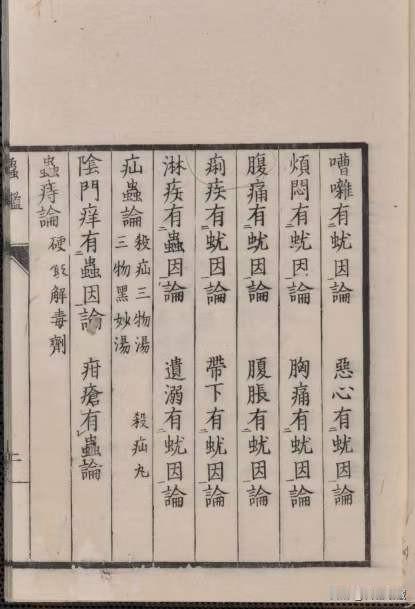 嘈囃有蚘因論　惡心有蚘因論
煩悶有蚘因論　胸痛有蚘因論
腹痛有蚘因論　腹脹有蚘因論
痢疾有蚘因論　帶下有蚘因論
淋疾有蟲因論　遺溺有蚘因論
疝蟲論　殺疝三物湯　殺疝丸
三物黑妙湯
陰門痒有蟲因論　疳瘡有蟲論
蟲痔論　硬解毒劑
蟲鑑
二